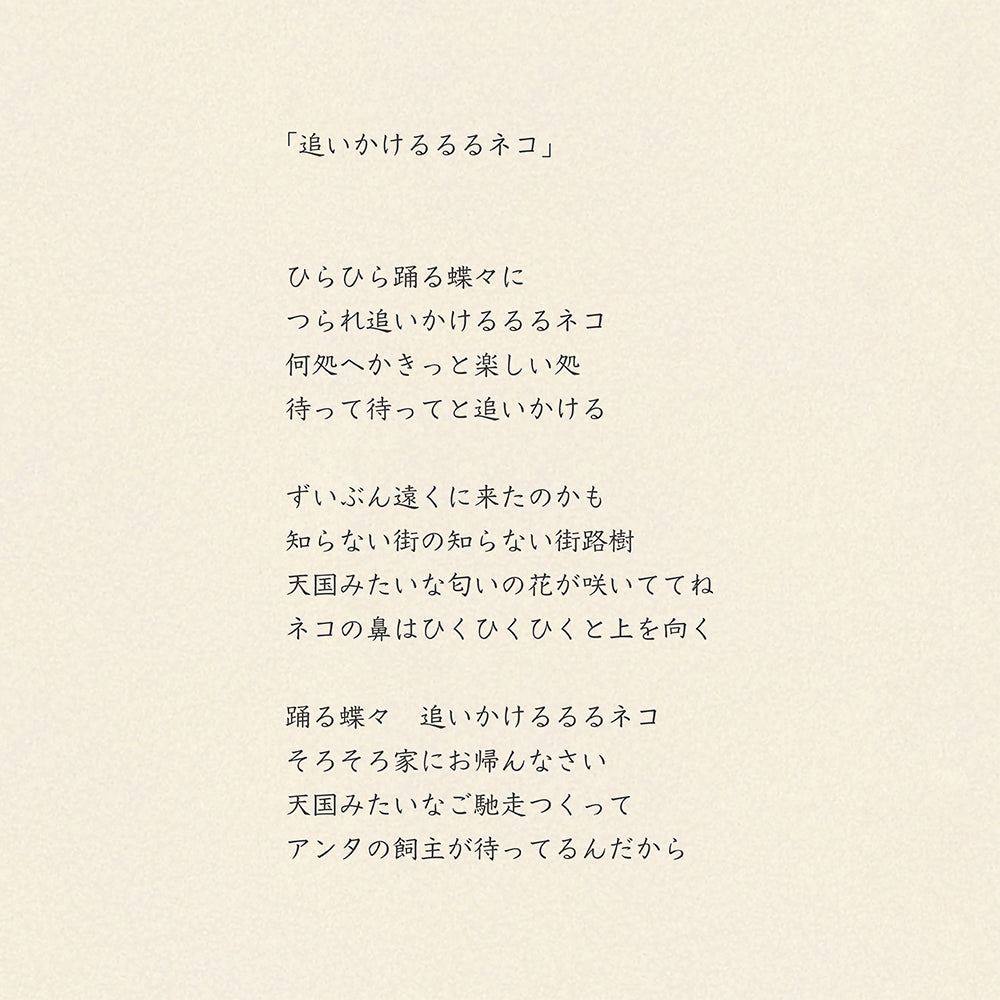 「追いかけるるるネコ」
ひらひら踊る蝶々に
つられ追いかけるるるネコ
何処へかきっと楽しい処
待って待ってと追いかける
ずいぶん遠くに来たのかも
知らない街の知らない街路樹
天国みたいな匂いの花が咲いててね
ネコの鼻はひくひくひくと上を向く
踊る蝶々　追いかけるるるネコ
そろそろ家にお帰んなさい
天国みたいなご馳走つくって
アンタの飼主が待ってるんだから